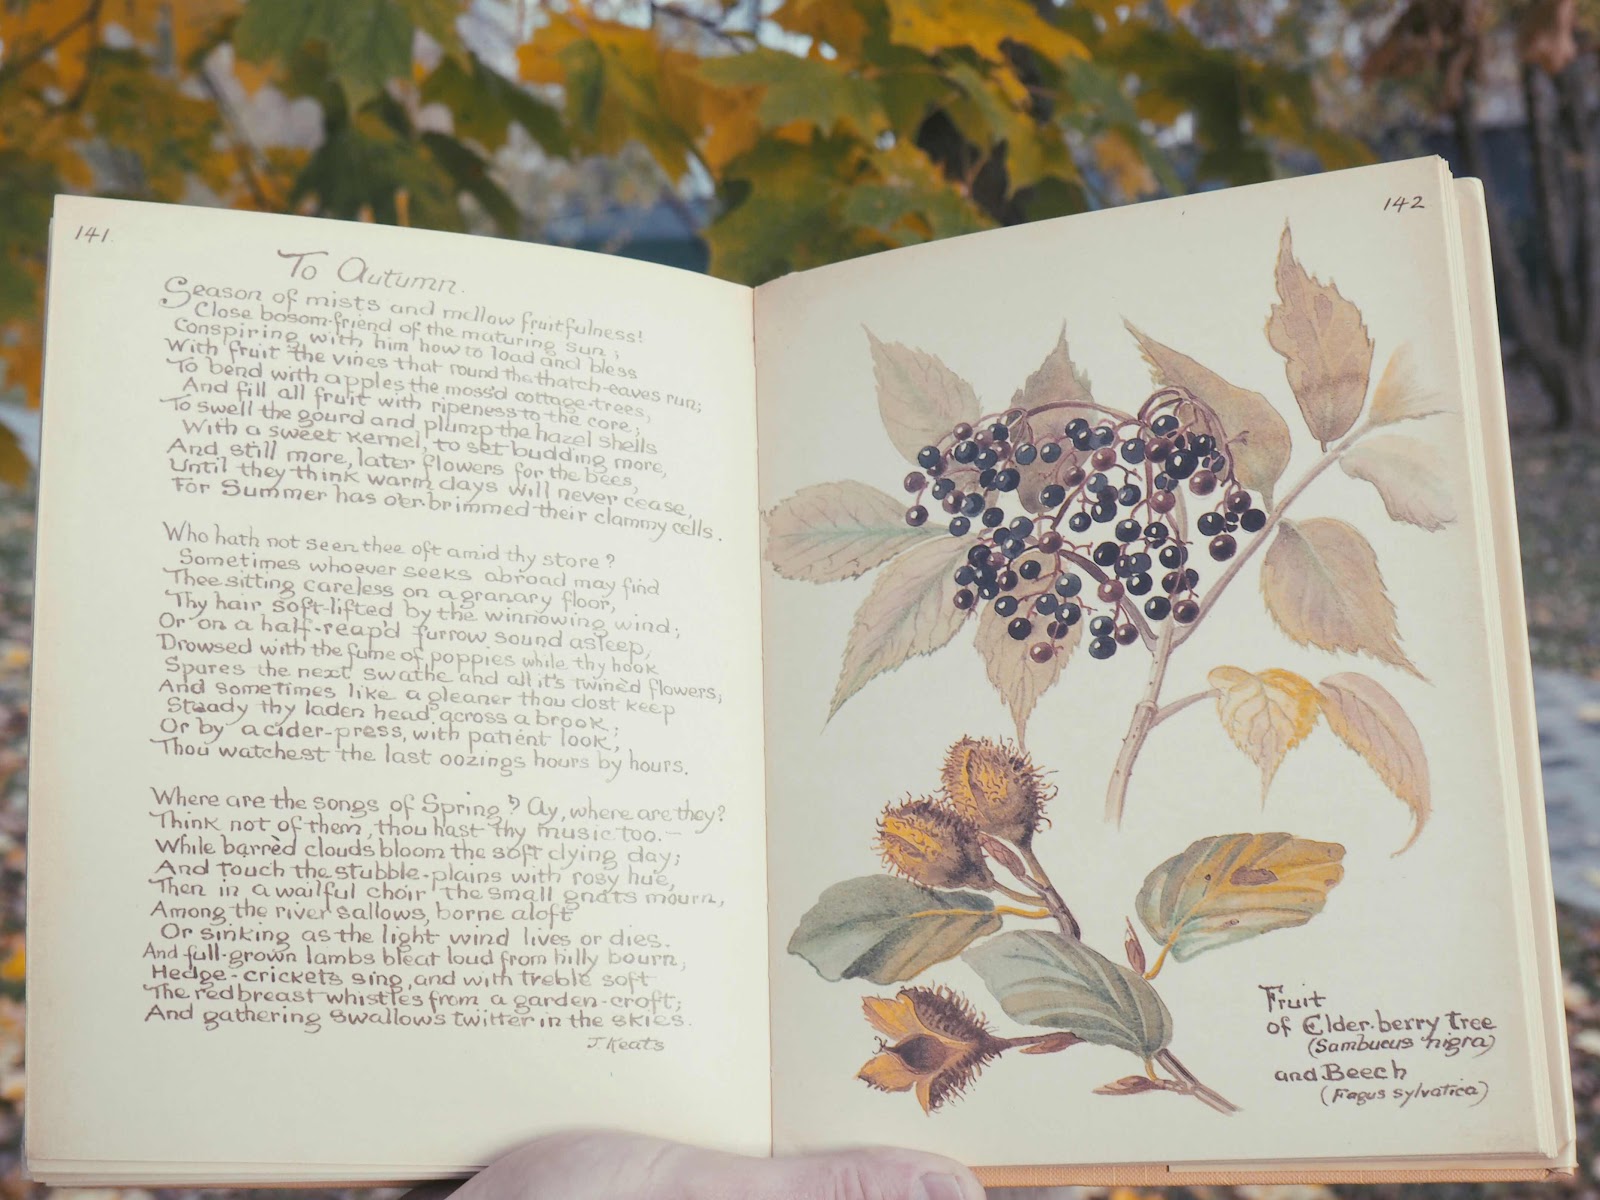 141.
To Autumn.
Season of mists and mellow fruitfulness!
Close bosom-friend of the maturing sun;
Conspiring with him how to load and bless
With fruit the vines that round the thatch-eaves run;
To bend with apples the moss'd cottage-trees,
And fill all fruit with ripeness to the core;
To swell the gourd and plump the hazel shells
With a sweet kernel, to set budding more,
And still more, later flowers for the bees,
Until they think warm days will never cease,
For Summer has o'er-brimmed their clammy cells.
Who hath not seen thee oft amid thy store?
Sometimes whoever seeks abroad may find
Thee sitting careless on a granary floor,
Thy hair soft-lifted by the winnowing wind;
Or on a half-reap'd furrow sound asleep,
Drowsed with the fume of poppies while thy hook
Spares the next swathe and all it's twinèd flowers;
And sometimes like a gleaner thou dost keep
Steady thy laden head across a brook;
Or by a cider-press, with patient look,
Thou watchest the last oozings hours by hours.
Where are the songs of Spring? Ay, where are they?
Think not of them, thou hast thy music too.—
While barrèd clouds bloom the soft dying day;
And touch the stubble-plains with rosy hue,
Then in a wailful choir the small gnats mourn,
Among the river sallows, borne aloft
Or sinking as the light wind lives or dies.
And full-grown lambs bleat loud from hilly bourn,
Hedge-crickets sing, and with treble soft
The redbreast whistles from a garden-croft;
And gathering swallows twitter in the skies.
J. Keats
142
Fruit
of Elder-berry tree
(Sambucus nigra)
and Beech
(Fagus sylvatica)